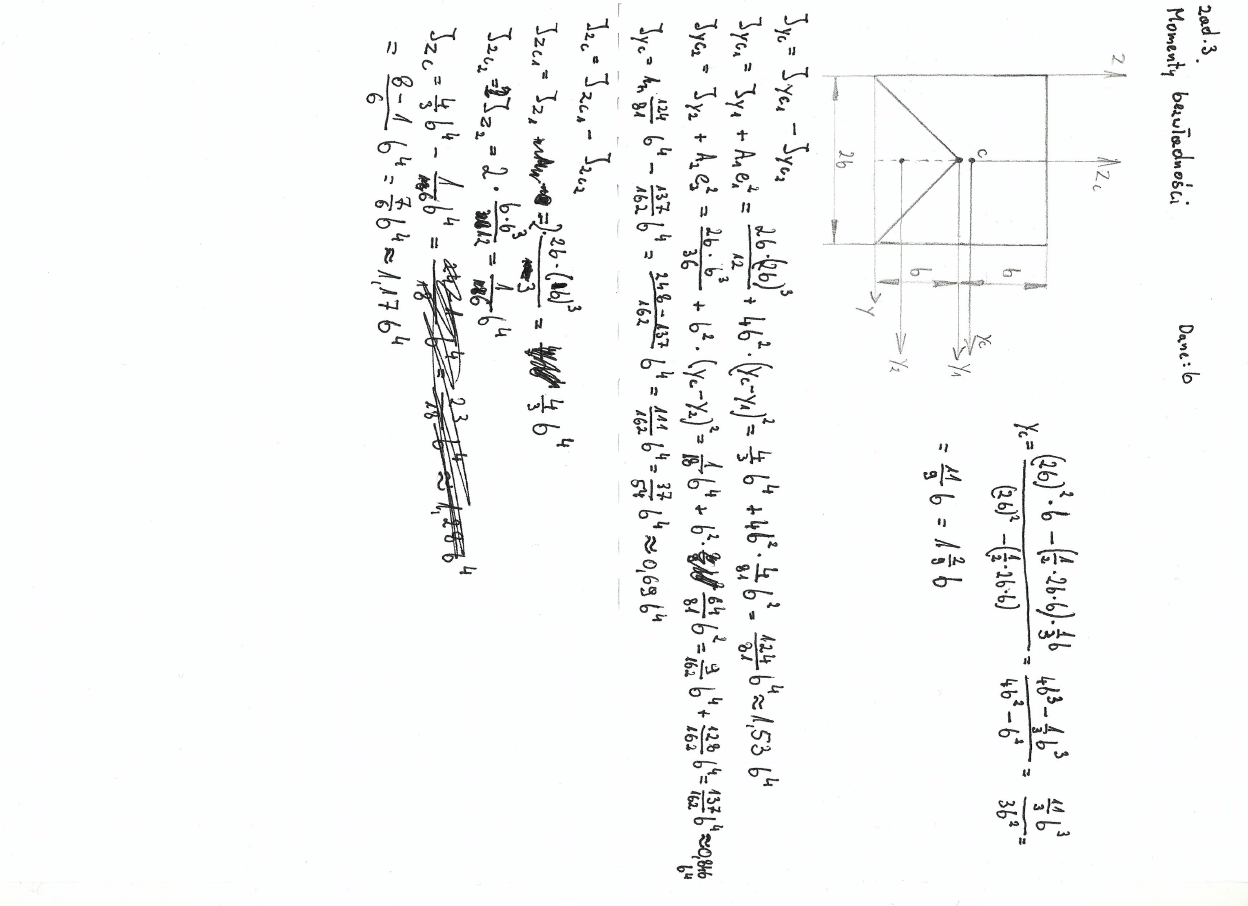 zad.3.
Momenty bezwładności
Dane: b
z
z_c
c
y_c
y_1
y_2
y
2b
b
b
y_c = ((2b)^2·b − (1/2·2b·b)·1/3 b) / ((2b)^2 − (1/2·2b·b)) = (4b^3 − 1/3 b^3) / (4b^2 − b^2) = (11/3 b^3) / (3b^2) =
= 11/9 b = 1 2/9 b
J_yc = J_yc1 − J_yc2
J_yc1 = J_y1 + A_1e_1^2 = (2b·(2b)^3)/12 + 4b^2·(y_c−y_1)^2 = 4/3 b^4 + 4b^2·4/81 b^2 = 124/81 b^4 ≈ 1,53 b^4
J_yc2 = J_y2 + A_2e_2^2 = (2b·b^3)/36 + b^2·(y_c−y_2)^2 = 1/18 b^4 + b^2·64/81 b^2 = 9/162 b^4 + 128/162 b^4 = 137/162 b^4 ≈ 0,846 b^4
J_yc = 124/81 b^4 − 137/162 b^4 = (248−137)/162 b^4 = 111/162 b^4 = 37/54 b^4 ≈ 0,69 b^4
J_zc = J_zc1 − J_zc2
J_zc1 = J_z1 = 2·(2b·(b)^3)/3 = 4/3 b^4
J_zc2 = 2J_z2 = 2·(b·b^3)/12 = 1/6 b^4
J_zc = 4/3 b^4 − 1/6 b^4 =
= (8−1)/6 b^4 = 7/6 b^4 ≈ 1,17 b^4